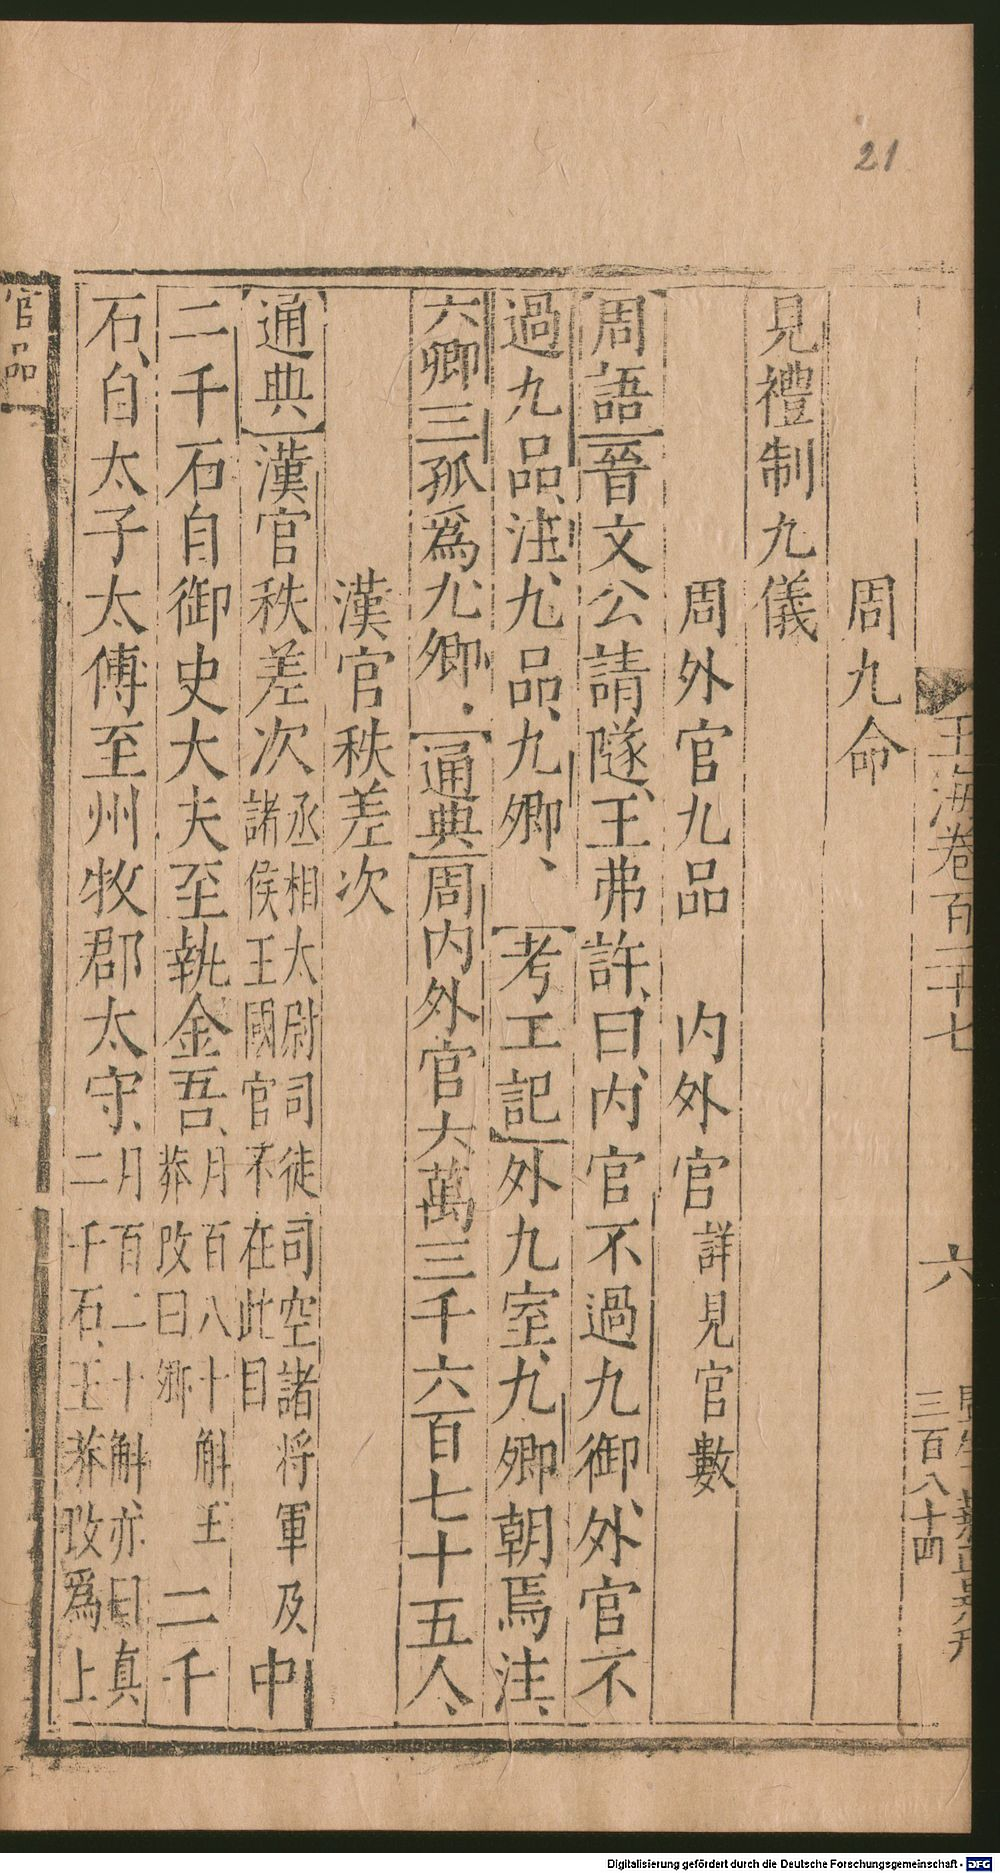 21
玉海卷百二十七
六
三百八十四
周九命
見禮制九儀
周外官九品 內外官詳見官數
周語晉文公請隧王弗許曰內官不過九御外官不
過九品注九品九卿 考工記外九室九卿朝焉注
六卿三孤爲九卿 通典周內外官六萬三千六百七十五人
漢官秩差次
通典漢官秩差次丞相太尉司徒司空諸将軍及諸侯王國官不在此目中
二千石自御史大夫至執金吾月百八十斛王莽改曰卿二千
石自太子太傅至州牧郡太守月百二十斛亦曰真二千石王莽改爲上
官品
Digitalisierung gefördert durch die Deutsche Forschungsgemeinschaft - DFG